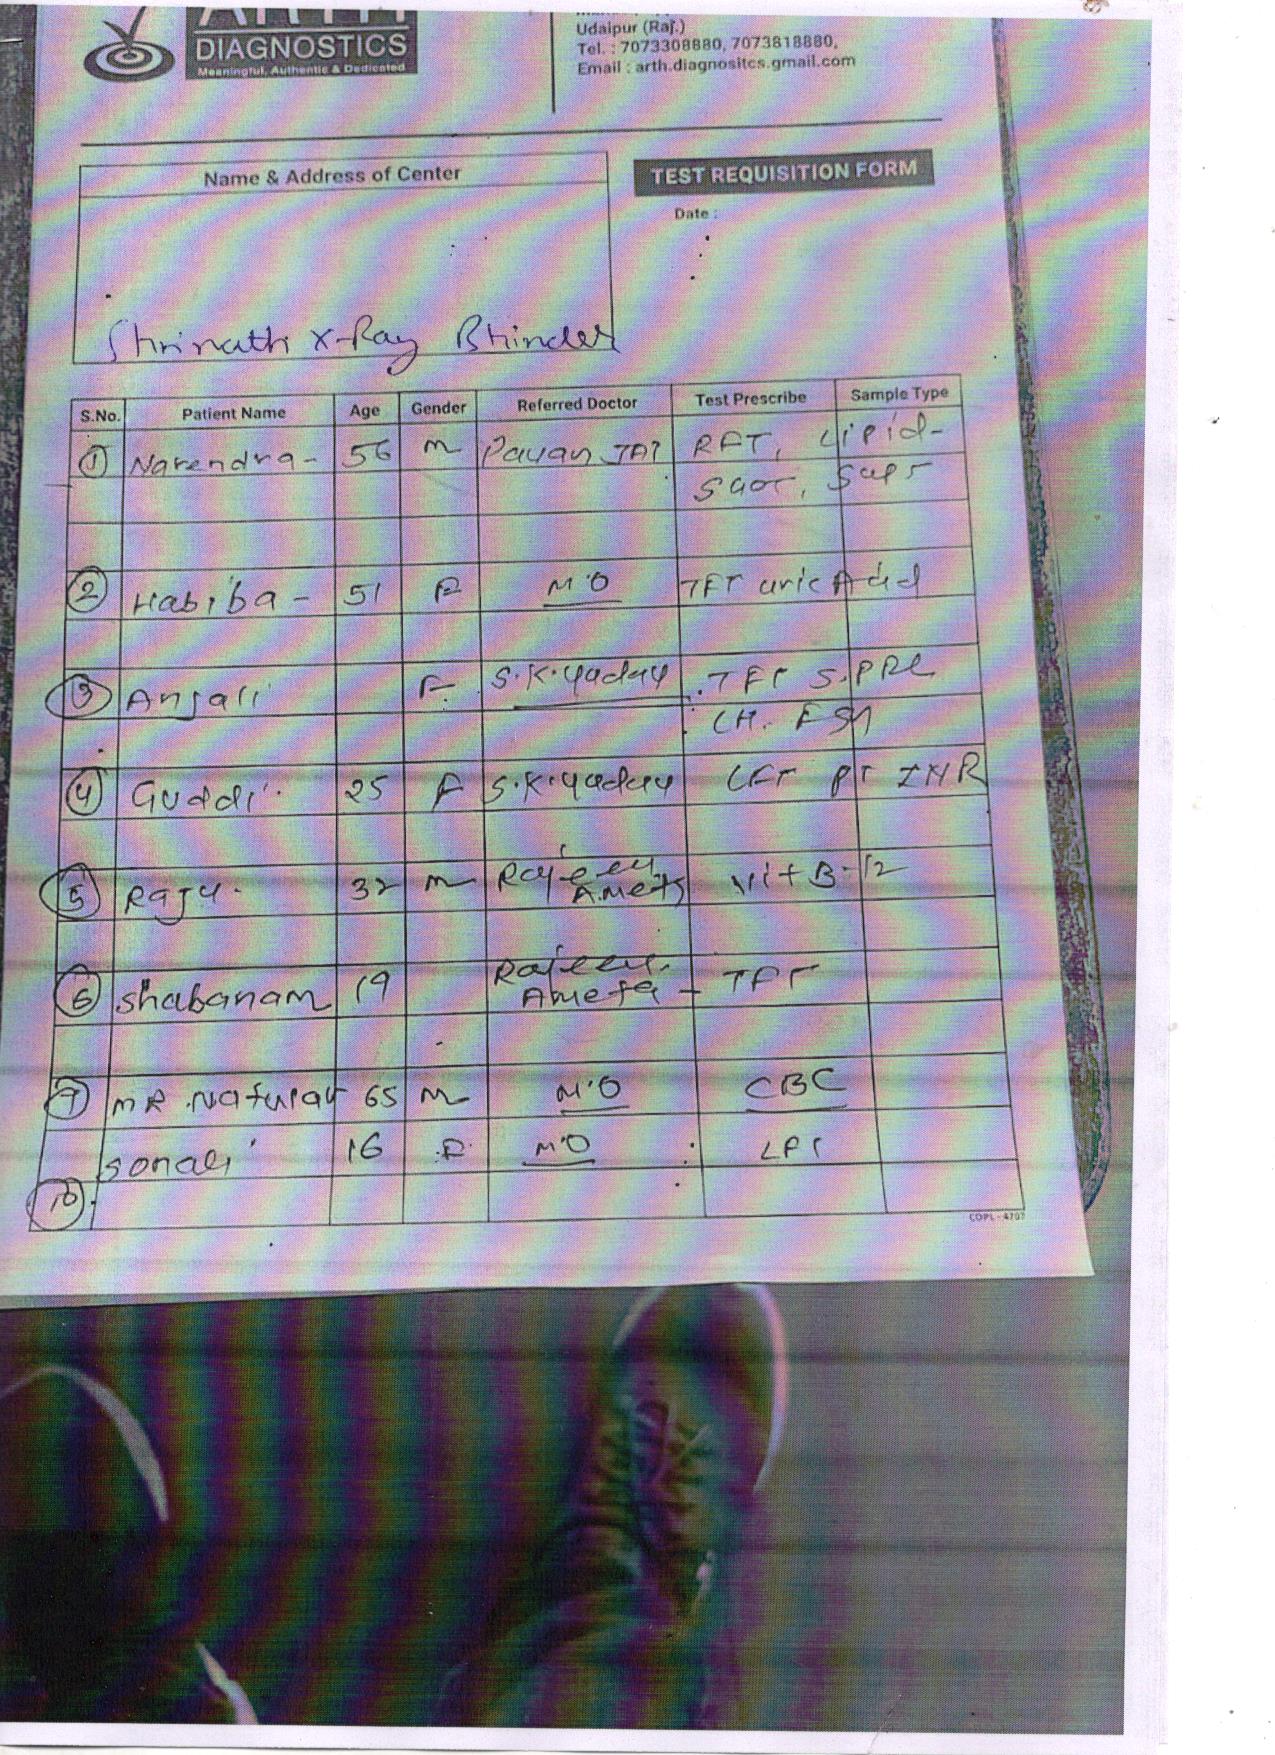 ARTH
DIAGNOSTICS
Meaningful, Authentic & Dedicated
Udaipur (Raj.)
Tel. : 7073308880, 7073818880,
Email : arth.diagnositcs.gmail.com
Name & Address of Center
TEST REQUISITION FORM
Date :
Shrinath X-Ray Bhinder
S.No. Patient Name Age Gender Referred Doctor Test Prescribe Sample Type
1 Narendra - 56 m Pavan JAI RFT, Lipid-
SGOT, SGPT
2 Habiba - 51 F M.O TFT uric Acid
3 Anjali F S.K.Yadav TFT S.PRL
LH. FSH
4 Guddi 25 F S.K.Yadav LFT PT INR
5 Raju 32 m Rajeev Ameta Vit B-12
6 Shabanam 19 Rajeev Ameta - TFT
7 MR. 65 m M.O CBC
Sonali 16 F M.O LFT
10
COPL - 4707